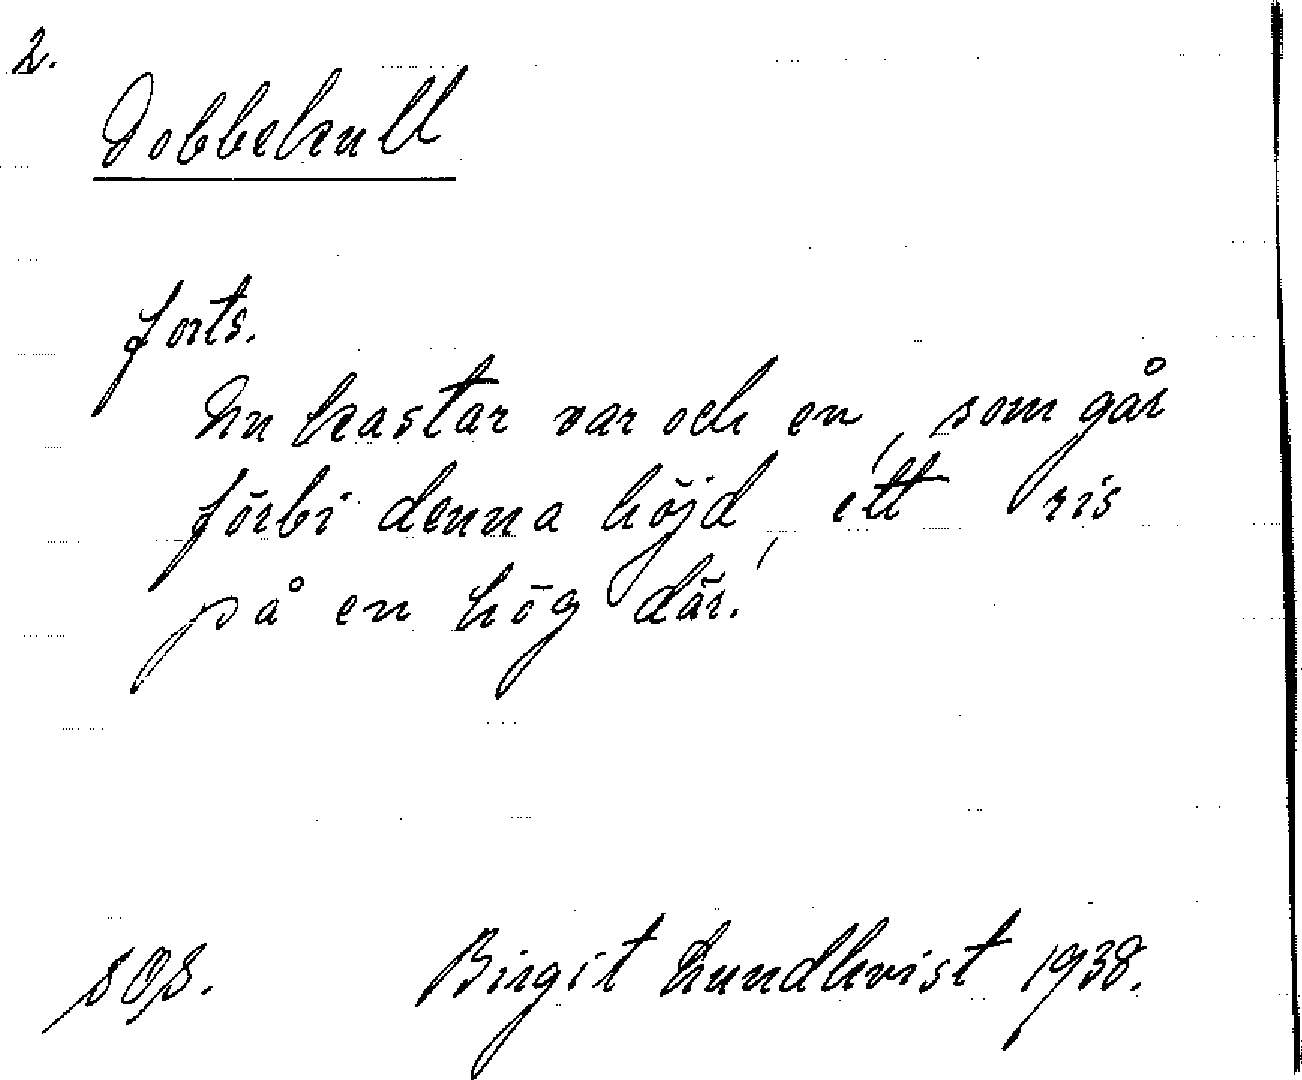 2.
Dobbekull
forts.
Nu kastar var och en, som går
förbi denna höjd, ett ris
på en hög där.
Birgit Lundkvist 1938.